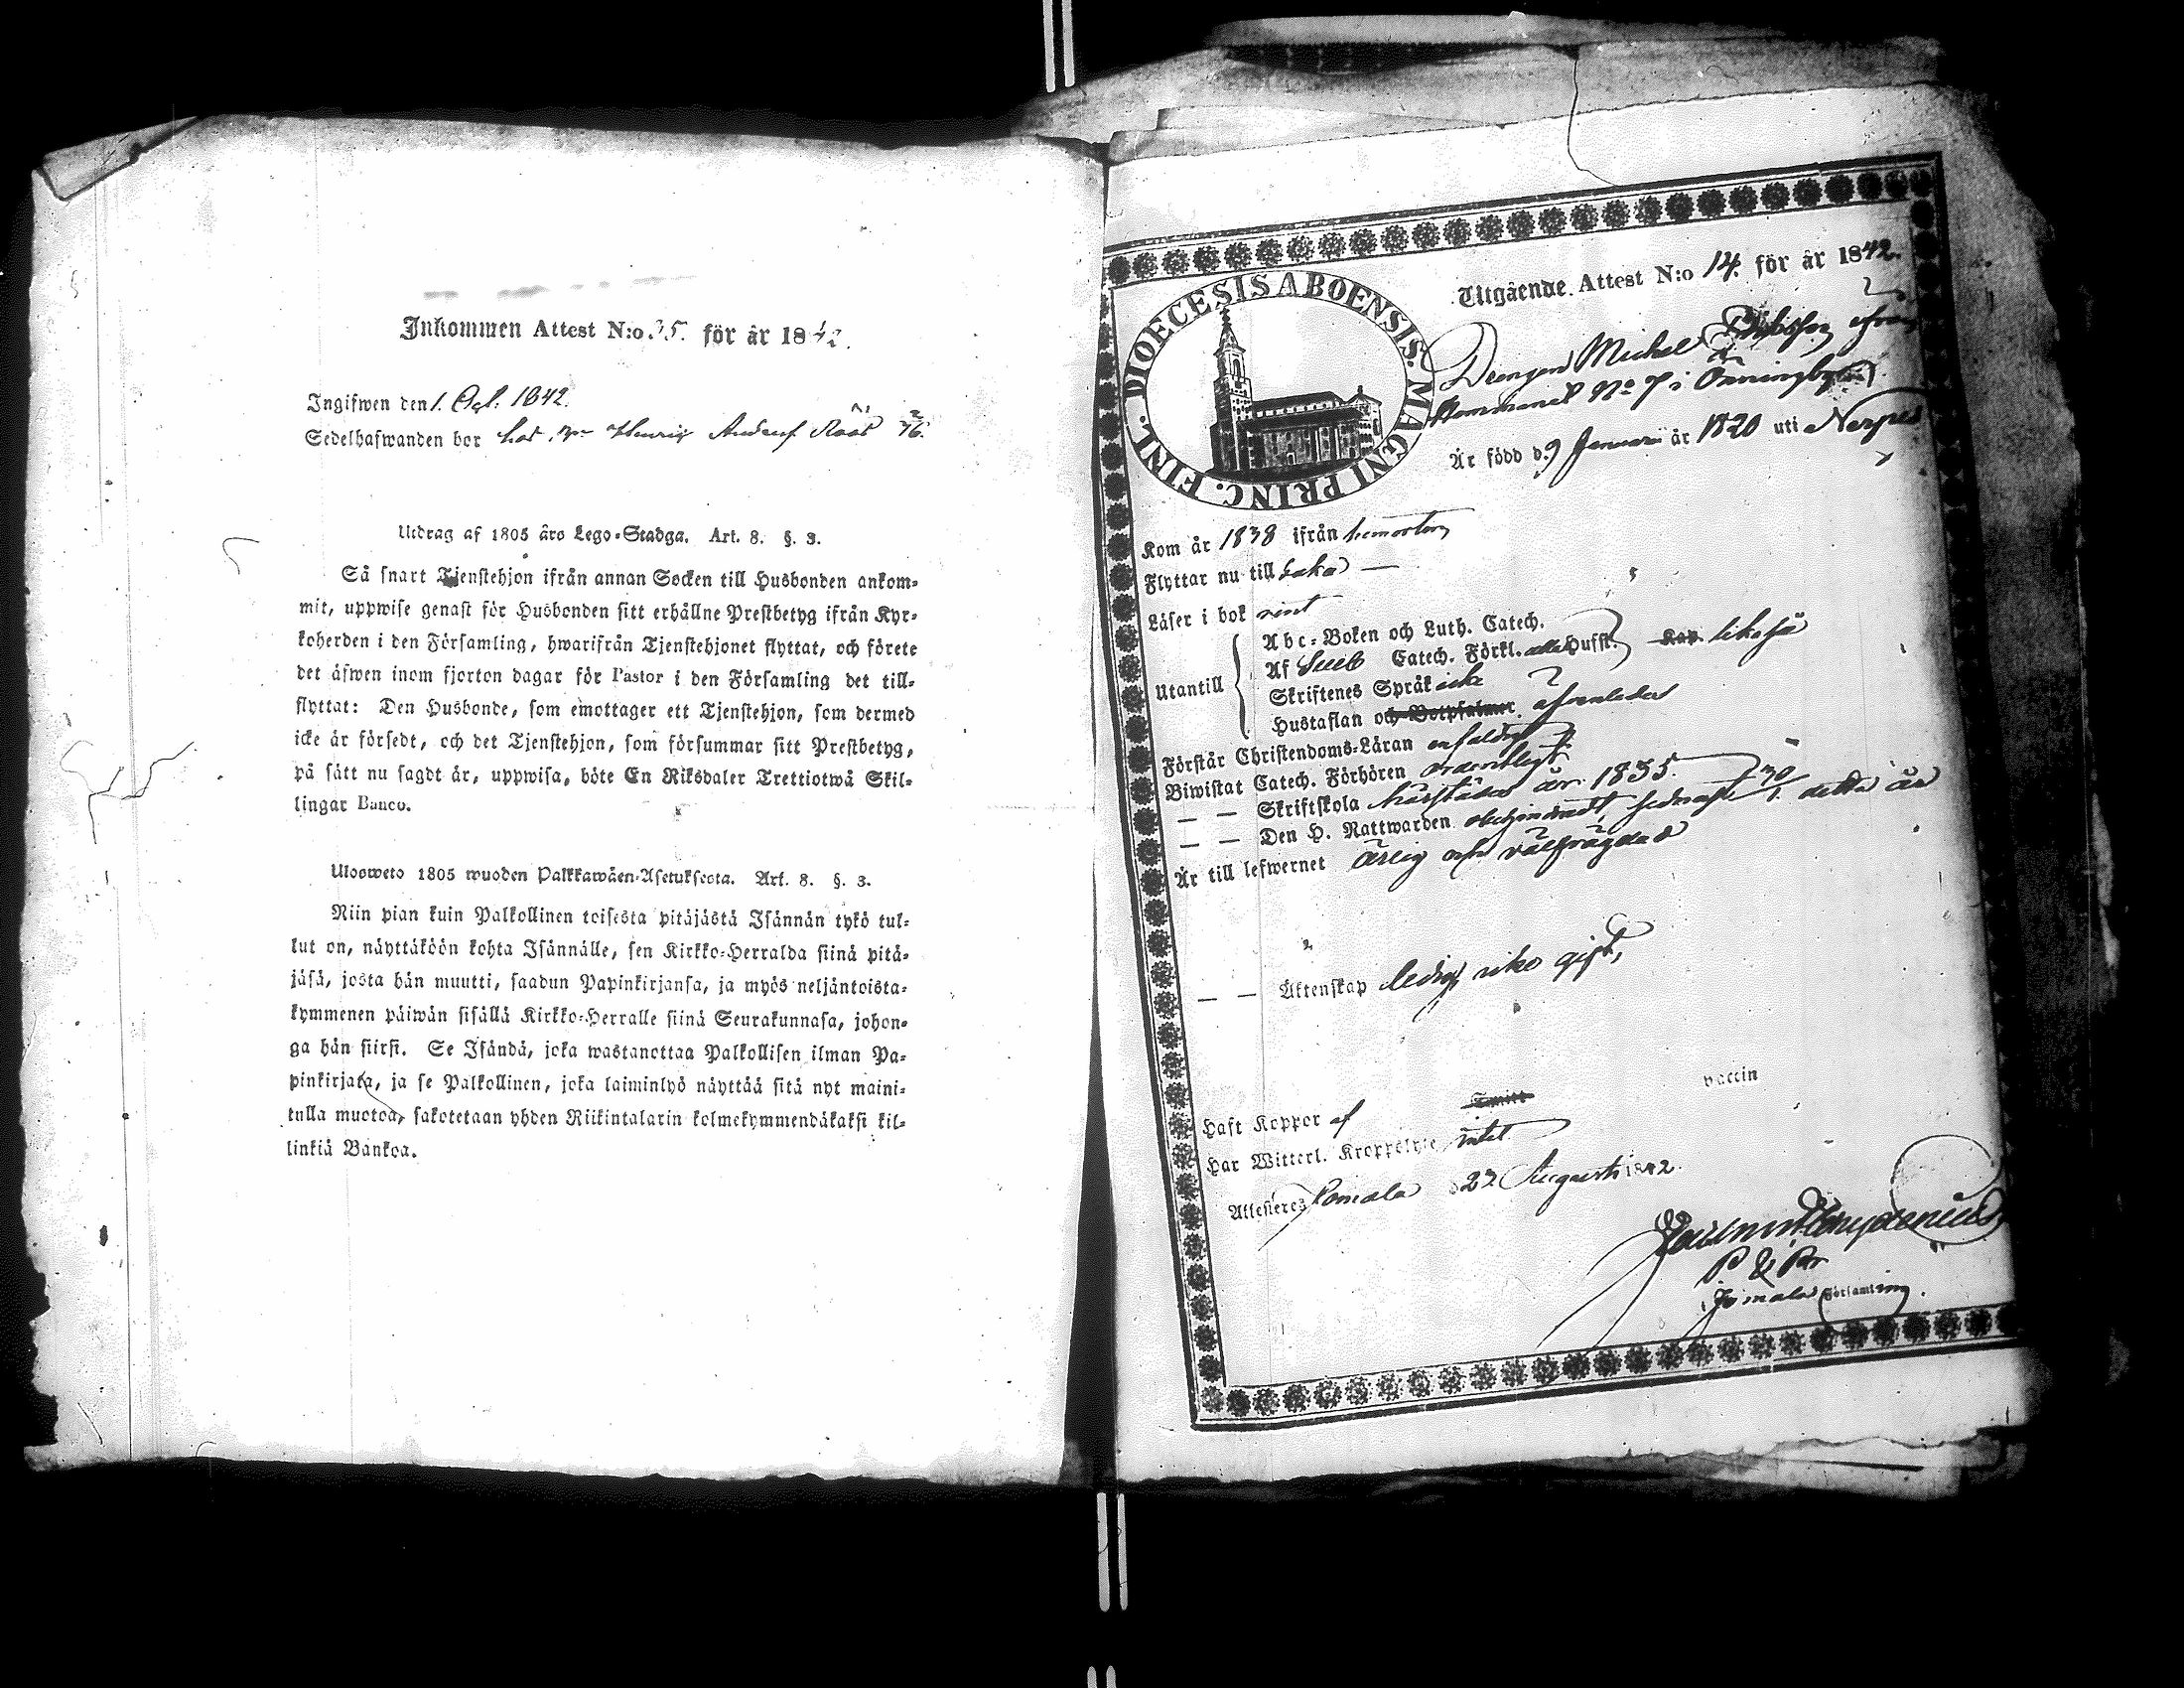 Inkommen Attest N:o 35. för år 1842.
Ingifwen den 1. Oct. 1842.
Sedelhafwanden bor hos Henric Anders Rååd 76.
Utdrag af 1805 års Lego-Stadga. Art. 8. §. 3.
Så snart Tjenstehjon ifrån annan Socken till Husbonden ankom-
mit, uppwise genast för Husbonden sitt erhållne Prestbetyg ifrån Kyr-
koherden i den Församling, hwarifrån Tjenstehjonet flyttat, och förete
det äfwen inom fjorton dagar för Pastor i den Församling det till-
flyttat: Den Husbonde, som emottager ett Tjenstehjon, som dermed
icke är försedt, och det Tjenstehjon, som försummar sitt Prestbetyg,
på sätt nu sagdt är, uppwisa, böte En Riksdaler Trettiotwå Skil-
lingar Banco.
Ulosweto 1805 wuoden Palkkawäen-Asetuksesta. Art. 8. §. 3.
Niin pian kuin Palkollinen toisesta pitäjästä Isännän tykö tul-
lut on, näyttäköön kohta Isännälle, sen Kirkko-Herralda siinä pitä-
jäsä, josta hän muutti, saadun Papinkirjansa, ja myös neljäntoista-
kymmenen päiwän sisällä Kirkko-Herralle siinä Seurakunnasa, johon-
ga hän siirsi. Se Isändä, joka wastanottaa Palkollisen ilman Pa-
pinkirjata, ja se Palkollinen, joka laiminlyö näyttää sitä nyt maini-
tulla muotoa, sakotetaan yhden Riikintalarin kolmekymmendäkaksi kil-
linkiä Bankoa.
DIOECESIS ABOENSIS. MAGNI PRINC. FINL.
Utgående Attest N:o 14. för år 1842.
Drengen Michel ifrån
Hemmanet No 7 i Önningby
Är född d. 9 Januarii år 1820 uti Nerpes
Kom år 1838 ifrån hemorten
Flyttar nu till baka —
Läser i bok rent
Utantill
Abc-Boken och Luth. Catech.
Af Sveb Catech. Förkl. alla Hufst. Kap. likaså
Skriftenes Språk icke
Hustaflan och Botpsalmer
Förstår Christendoms-Läran enfaldigt
Biwistat Catech. Förhören ordentligt
— — Skriftskola härstädes år 1835.
— — Den H. Nattwarden obehindradt, sednast 30/1. detta år
Är till lefwernet ärlig och välfrägdad
— — Äktenskap ledig icke gift,
Haft Koppor af Smitt vaccin
Har Witterl. Kroppslyte intet
Attesteres Jomala d 27 Augusti 1842.
P & Pr
i Jomala Församling.